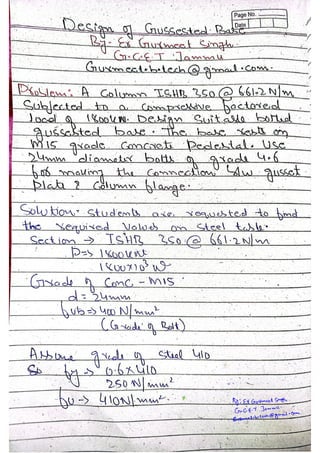 Page No.
Date
Design of Gussested Base
By:- Er Gurmeet Singh
G.C.E.T Jammu
Gurmeet.b.tech@gmail.com.
Problem:- A Column ISHB 350 @ 661.2 N/m
Subjected to a compressive factored
load of 1800KN. Design Suitable bolted
gussested base. The base rests on
M15 grade Concrete Pedestal. Use
24mm diameter bolts of grade 4.6
for making the Connection b/w gusset
plate & Column flange.
Solution:- Students are requested to find
the required Values on Steel table.
Section → ISHB 350 @ 661.2N/m
P => 1800KN
1800x10³ N
Grade of Conc - M15
d = 24mm
fub => 400 N/mm²
(Grade of Bolt)
Assume grade of Steel 410
So fy => 0.6x410
250 N/mm²
fu -> 410N/mm².
By: Er Gurmeet Singh
G.C.E.T Jammu
Gurmeet.b.tech@gmail.com